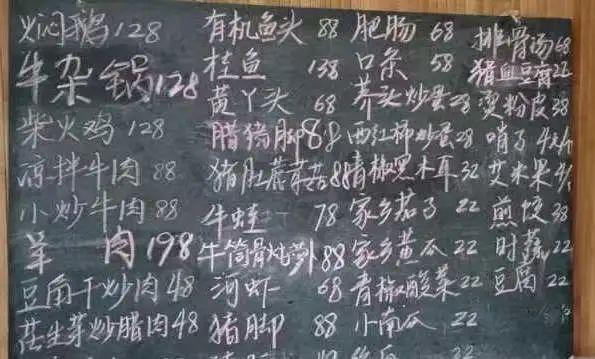 火焖鹅 128
牛杂锅 128
柴火鸡 128
凉拌牛肉 88
小炒牛肉 88
羊肉 198
豆角干炒肉 48
莴笋炒腊肉 48
有机鱼头 88
桂鱼 138
黄丫头 68
腊猪脚 88
猪肚蔗菜苔 88
牛蛙 78
牛筒骨炖萝卜 88
河虾 68
猪脚 88
肥肠 68
口条 58
荞头炒蛋 28
西红柿炒蛋 28
青椒黑木耳 32
家乡茄子 22
家乡黄瓜 22
青椒酸菜 22
小南瓜 22
排骨汤 68
猪血豆腐 22
烫粉皮 38
哨子 4元/个
艾米果 4/
煎饺 38
时蔬 22
豆腐 22